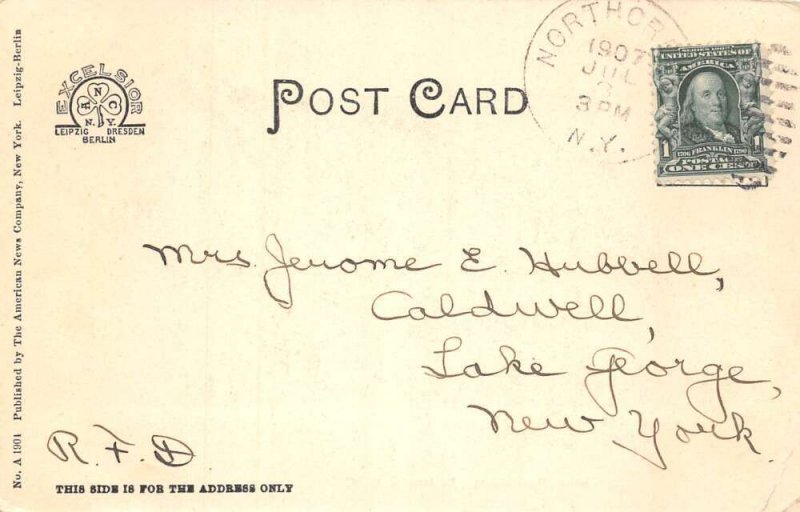 No. A 1904 Published by The American News Company, New York. Leipzig-Berlin
EXCELSIOR
A N C
N.Y.
LEIPZIG DRESDEN
BERLIN
POST CARD
1907
JUL
3 PM
N.Y.
SERIES 1902
UNITED STATES OF
AMERICA
1706 FRANKLIN 1790
1 POSTAGE 1
ONE CENT
Mrs. Jerome E. Hubbell,
Caldwell,
Lake George,
New York.
R.F.D
THIS SIDE IS FOR THE ADDRESS ONLY